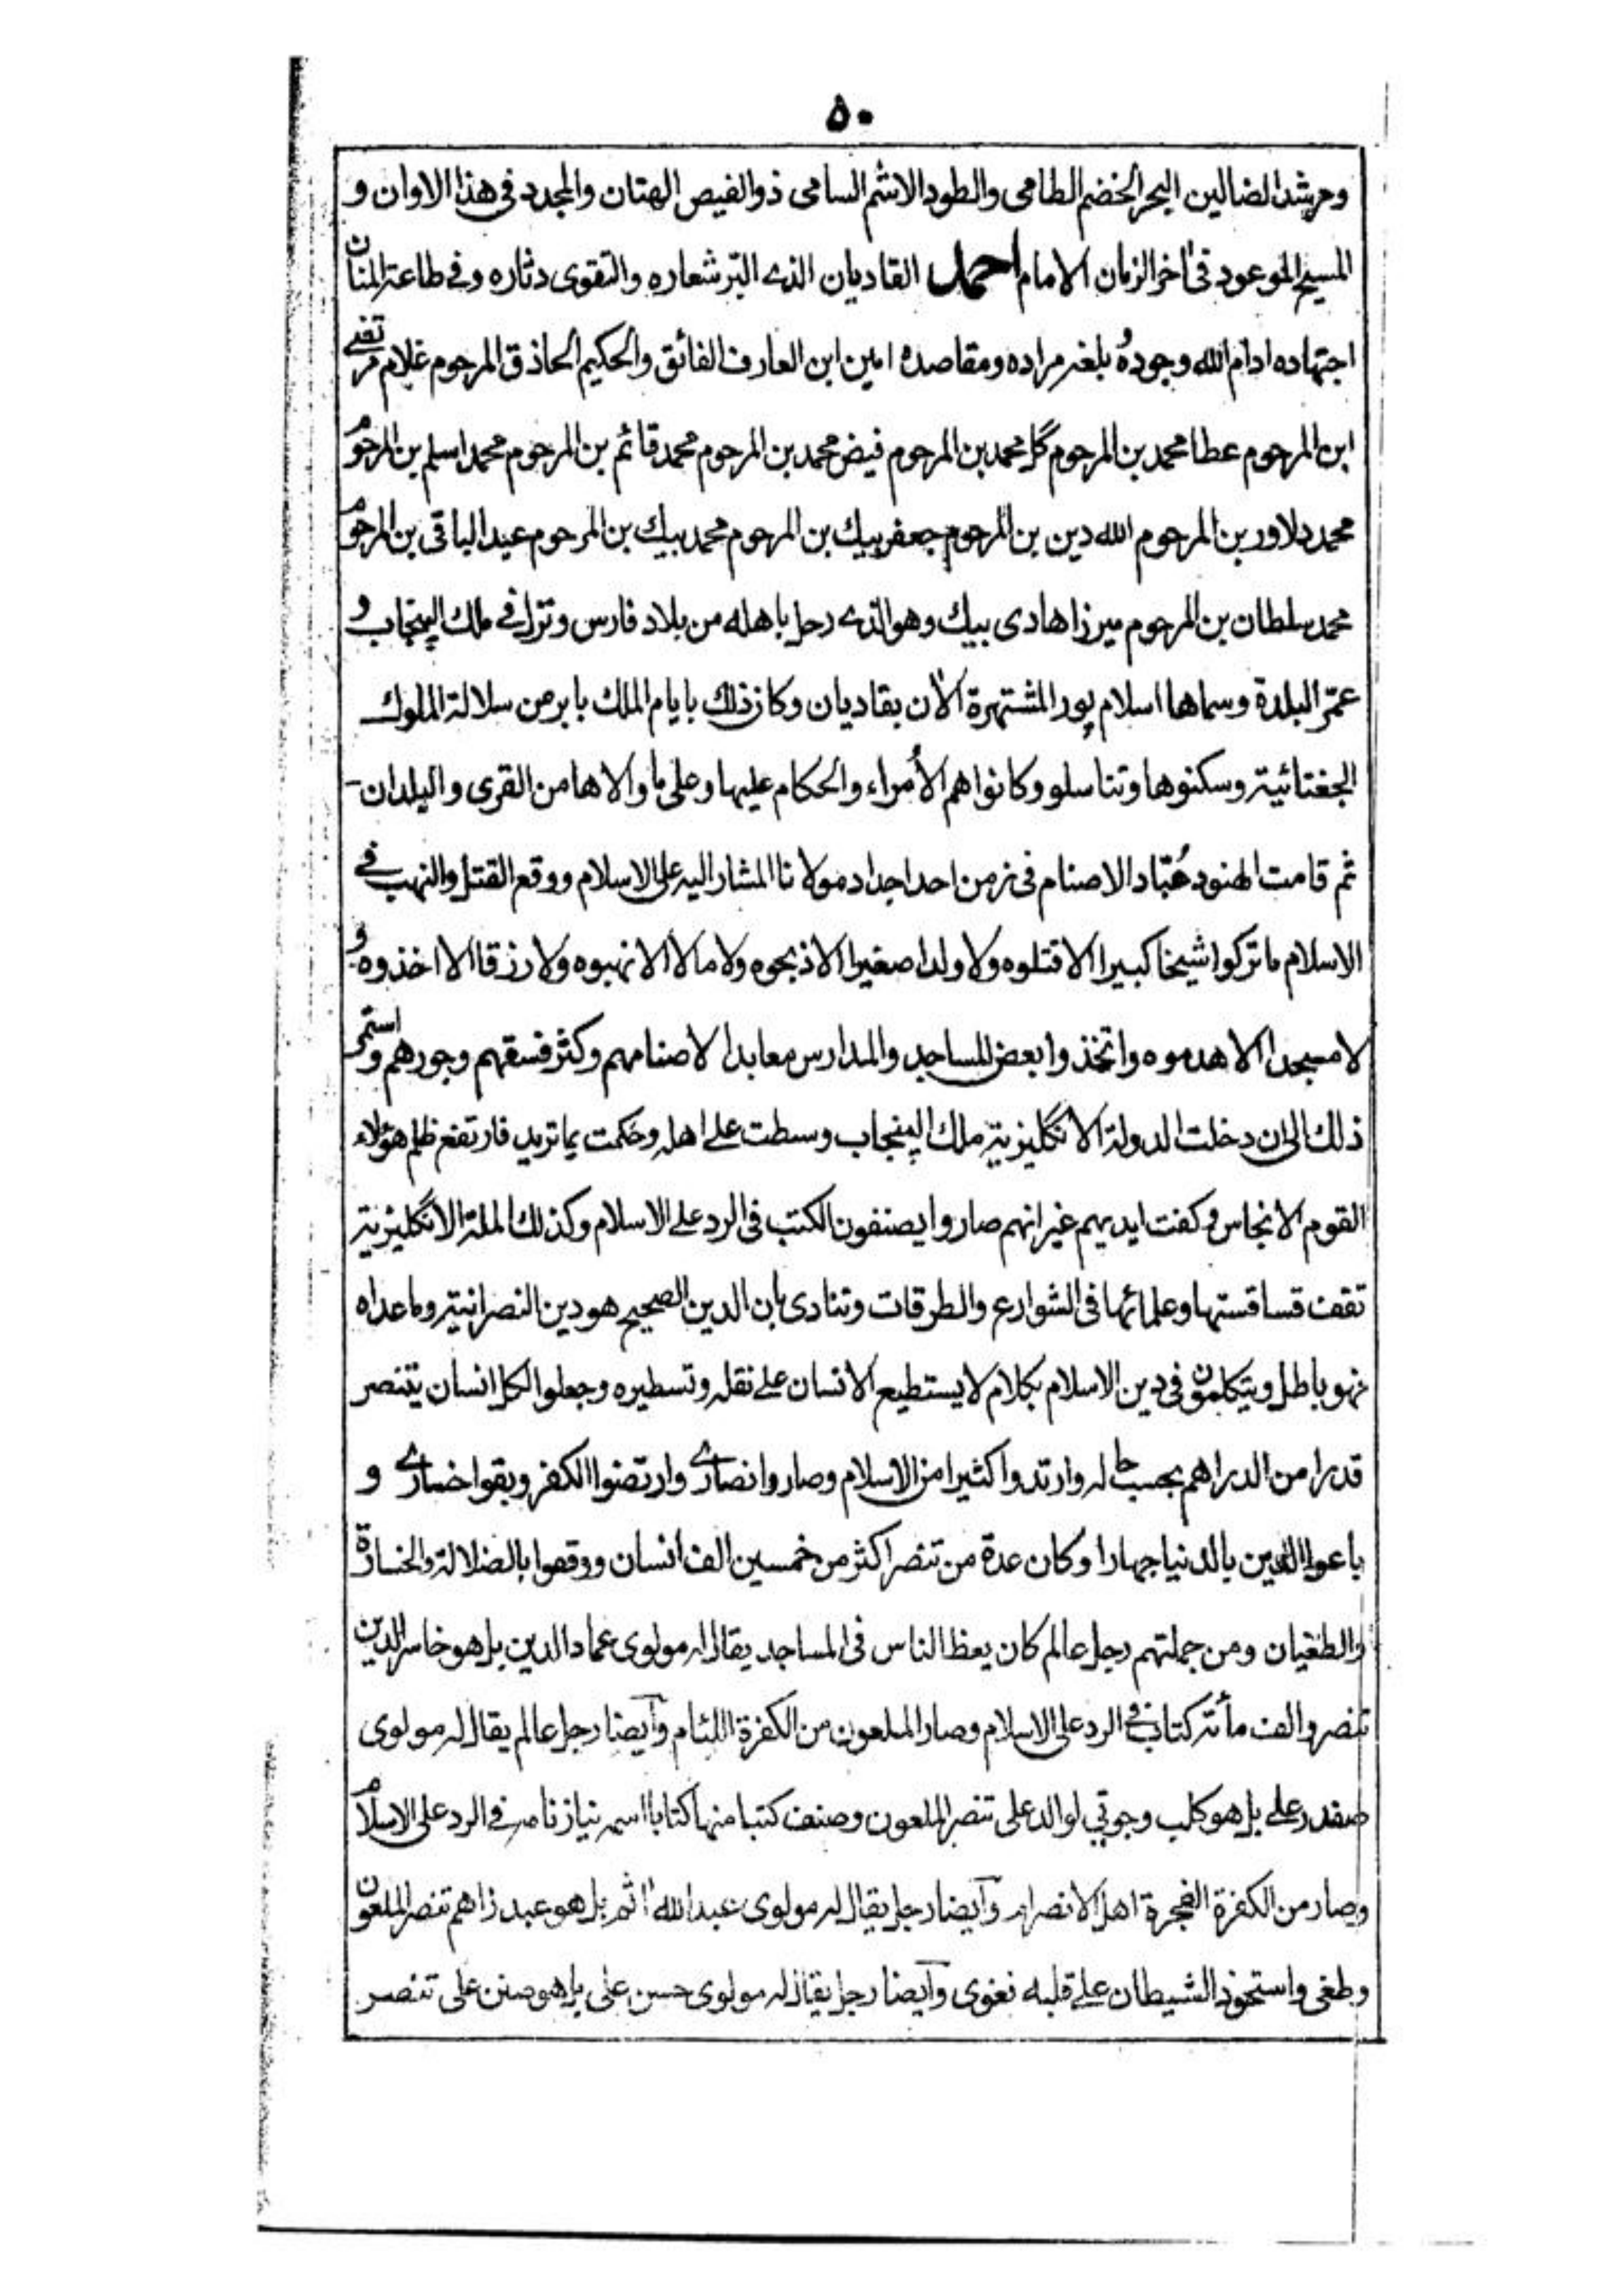 ٥٠
ومرشد الضالين البحر الخضم الطامى والطود الاشم السامى ذو الفيص الهتان والمجدد فى هذا الاوان و
المسيح الموعود فى اٰخر الزمان الامام احمد القاديان الذے البّر شعاره والتقوى دثاره وفے طاعة المنان
اجتهاده ادام الله وجودهٗ بلغه مراده ومقاصده امين ابن العارف الفائق والحكيم الحاذق المرحوم غلام مرتضے
ابن المرحوم عطا محمد بن المرحوم گل محمد بن المرحوم فيض محمد بن المرحوم محمد قائم بن المرحوم محمد اسلم بن المرحوم
محمد دلاور بن المرحوم الله دين بن المرحوم جعفر بيك بن المرحوم محمد بيك بن المرحوم عبد الباقى بن المرحوم
محمد سلطان بن المرحوم ميرزا هادى بيك وهو الذے رحل باهله من بلاد فارس ونزل فے ملك الپنجاب و
عمّر البلدة وسماها اسلام پور المشتهرة الاٰن بقاديان وكان ذلك بايام الملك بابر من سلالة الملوك
الجغتائية وسكنوها وتناسلو وكانوا هم الأمراء والحكام عليها وعلى ما والاها من القرى والبلدان-
ثم قامت الهنود عُبّاد الاصنام فى زمن احد اجداد مولانا المشار اليه على الاسلام ووقع القتل والنهب فے
الاسلام ما تركوا شيخا كبيرا الا قتلوه ولا ولدا صغيرا الا ذبحوه ولا مالا الا نهبوه ولا رزقا الا اخذوه و
لا مسجدا الا هدموه واتخذوا بعض المساجد والمدارس معابدا لاصنامهم وكثر فسقهم وجورهم واستمر
ذلك الى ان دخلت الدولة الانكليزية ملك الپنجاب وسطت علے اهله وحكمت بما تريد فارتفع ظلم هؤلاء
القوم الانجاس وكفت ايديهم غير انهم صاروا يصنفون الكتب فى الرد علے الاسلام وكذلك الملة الانگليزية
تقف قساقستها وعلمائها فى الشوارع والطرقات وتنادى بان الدين الصحيح هو دين النصرانية وما عداه
فهو باطل ويتكلمون فى دين الاسلام بكلام لا يستطيع الانسان علے نقله وتسطيره وجعلوا لكل انسان يتنصر
قدرا من الدراهم بحسب حاله وارتدوا كثيرا من الاسلام وصاروا نصارے وارتضوا الكفر وبقوا خسارے و
باعوا الدين بالدنيا جهارا وكان عدة من تنصر اكثر من خمسين الف انسان ووقعوا بالضلالة والخسارة
والطغيان ومن جملتهم رجل عالم كان يعظ الناس فى المساجد يقال له مولوى عماد الدين بل هو خاسر الدين
تنصر والف مأته كتاب فى الرد على الاسلام وصار الملعون من الكفرة اللئام وآيضا رجل عالم يقال له مولوى
صفدر علے بل هو كلب وجوتي لوالد على تنصر الملعون وصنف كتبا منها كتابا اسمه نياز نامه فے الرد على الاسلام
وصار من الكفرة الفجرة اهل الانصرام وآيضا رجل يقال له مولوى عبدالله اٰثم بل هو عبد زاهم تنصر الملعون
وطغى واستحوذ الشيطان علے قلبه فغوى وآيضا رجل يقال له مولوى حسن على بل هو صنن على تنصر